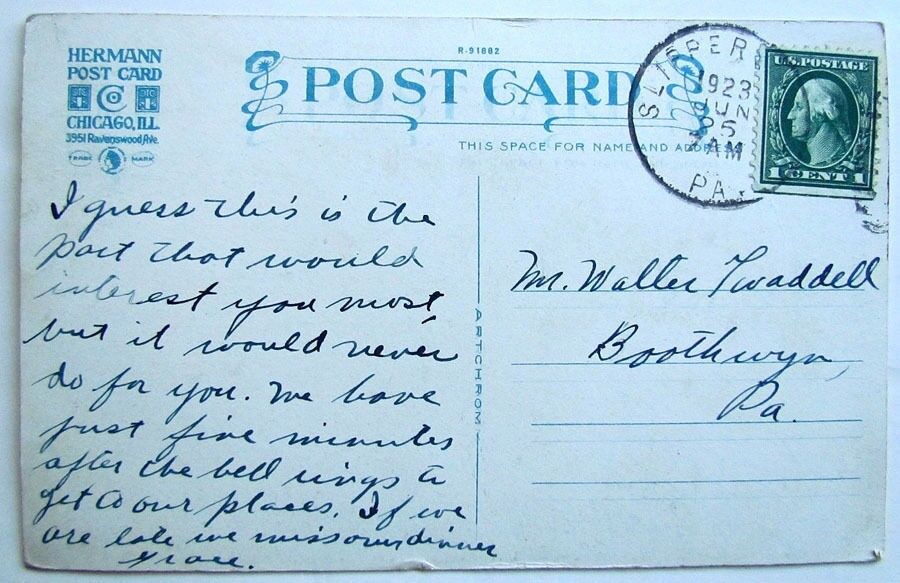 HERMANN
POST CARD
CO
CHICAGO, ILL.
3951 Ravenswood Ave.
TRADE MARK
R-91882
POST CARD
THIS SPACE FOR NAME AND ADDRESS
SLIPPER
1923
JUN
25
AM
PA.
U.S. POSTAGE
1 CENT 1
I guess this is the
part that would
interest you most,
but it would never
do for you. We have
just five minutes
after the bell rings to
get to our places. If we
are late we miss our dinner
Grace.
ARTCHROM
Mr. Walter Twaddell
Boothwyn,
Pa.